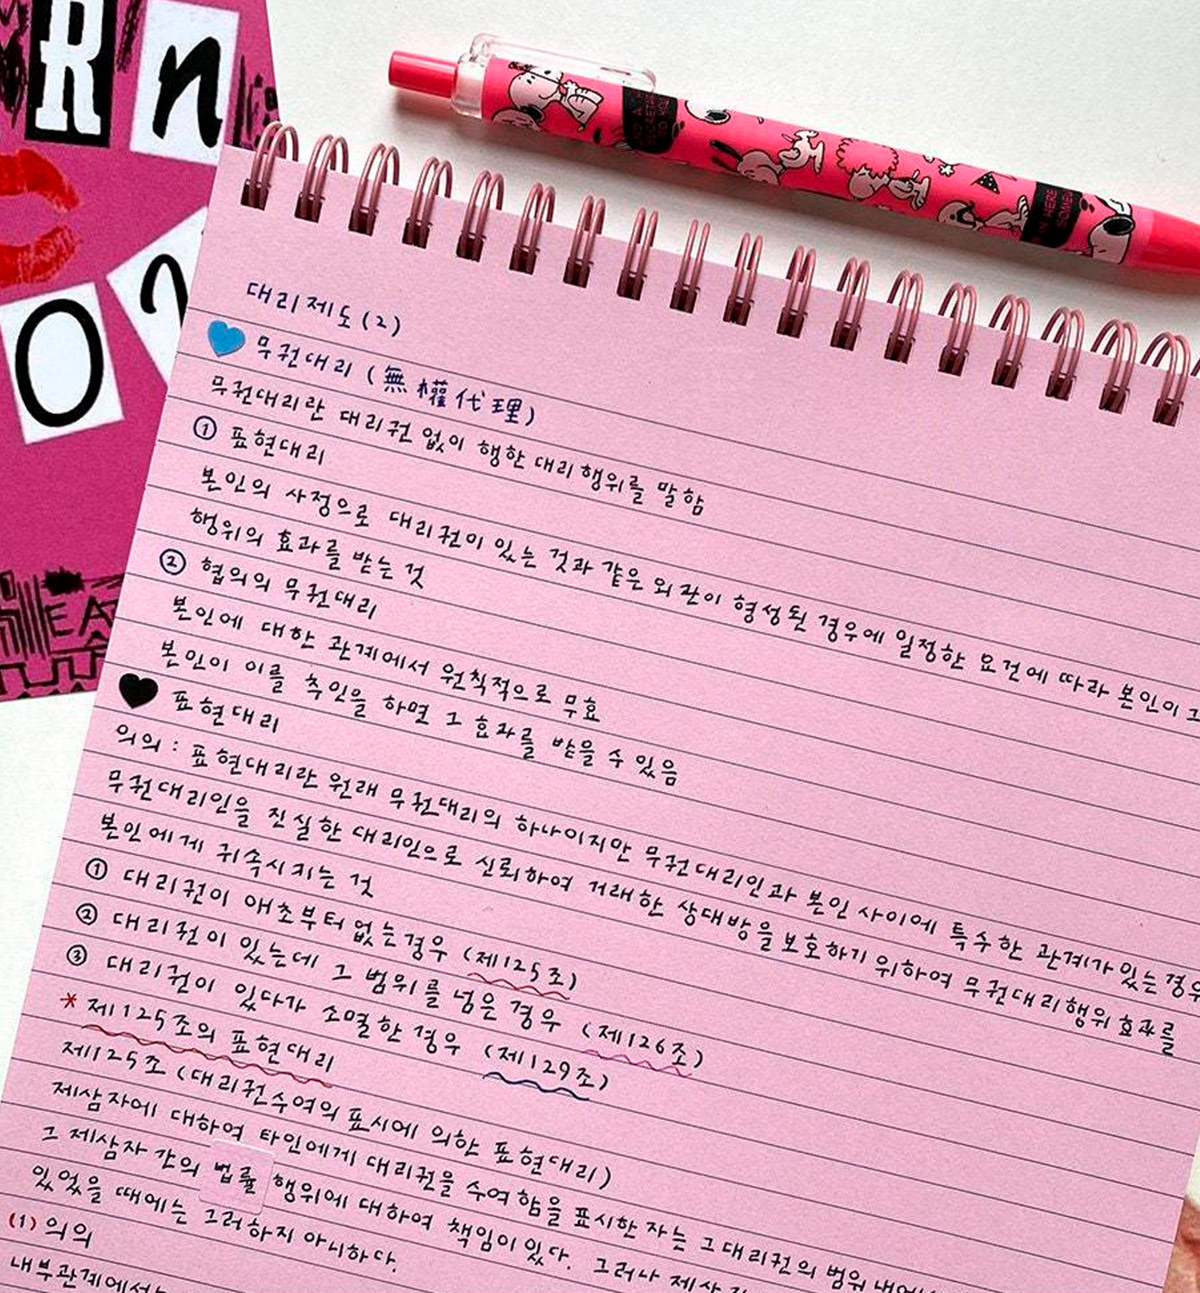 RN
O2
EA
대리제도(2)
무권대리(無權代理)
무권대리란 대리권 없이 행한 대리행위를 말함
① 표현대리
본인의 사정으로 대리권이 있는 것과 같은 외관이 형성된 경우에 일정한 요건에 따라 본인이 그
행위의 효과를 받는 것
② 협의의 무권대리
본인에 대한 관계에서 원칙적으로 무효
본인이 이를 추인을 하면 그 효과를 받을 수 있음
표현대리
의의 : 표현대리란 원래 무권대리의 하나이지만 무권대리인과 본인 사이에 특수한 관계가 있는 경우
무권대리인을 진실한 대리인으로 신뢰하여 거래한 상대방을 보호하기 위하여 무권대리행위 효과를
본인에게 귀속시키는 것
① 대리권이 애초부터 없는 경우 (제125조)
② 대리권이 있는데 그 범위를 넘은 경우 (제126조)
③ 대리권이 있다가 소멸한 경우 (제129조)
* 제125조의 표현대리
제125조(대리권수여의 표시에 의한 표현대리)
제삼자에 대하여 타인에게 대리권을 수여함을 표시한 자는 그 대리권의 범위 내에서
그 제삼자 간의 법률행위에 대하여 책임이 있다. 그러나 제삼
있었을 때에는 그러하지 아니하다.
(1) 의의
내부관계에서는